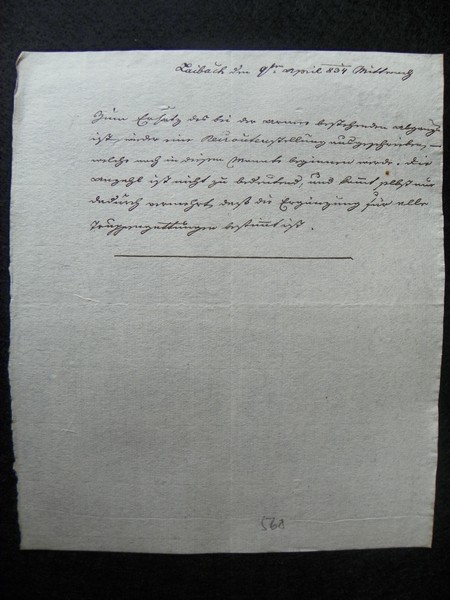 Laibach den 9ten April 834 Mittwoch
Zum Ersatz des bei der Armee bestehenden Abgangs
ist wieder eine Rekrutenstellung ausgeschrieben,
welche noch in diesem Monate beginnen werde. Die
Anzahl ist nicht zu bedeutend, und kömmt selbst nur
dadurch vermehrt, daß die Ergänzung für alle
Truppengattungen bestimmt ist.
568